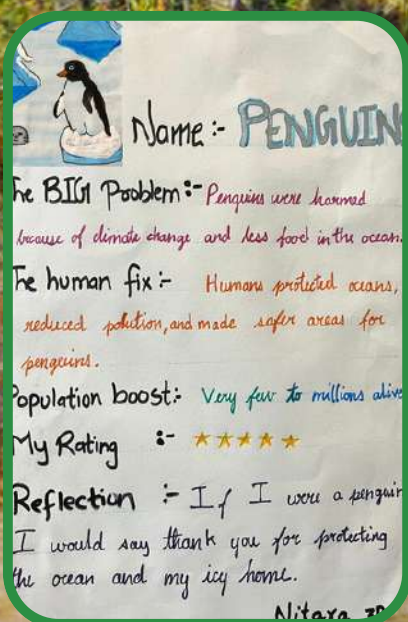 Name :- PENGUIN
he BIG Problem :- Penguins were harmed
because of climate change and less food in the ocean.
The human fix :- Humans protected oceans,
reduced polution, and made safer areas for
penguins.
Population boost :- Very few to millions alive
My Rating :- ★★★★★
Reflection :- If I were a penguin
I would say thank you for protecting
the ocean and my icy home.
Nitara 3D